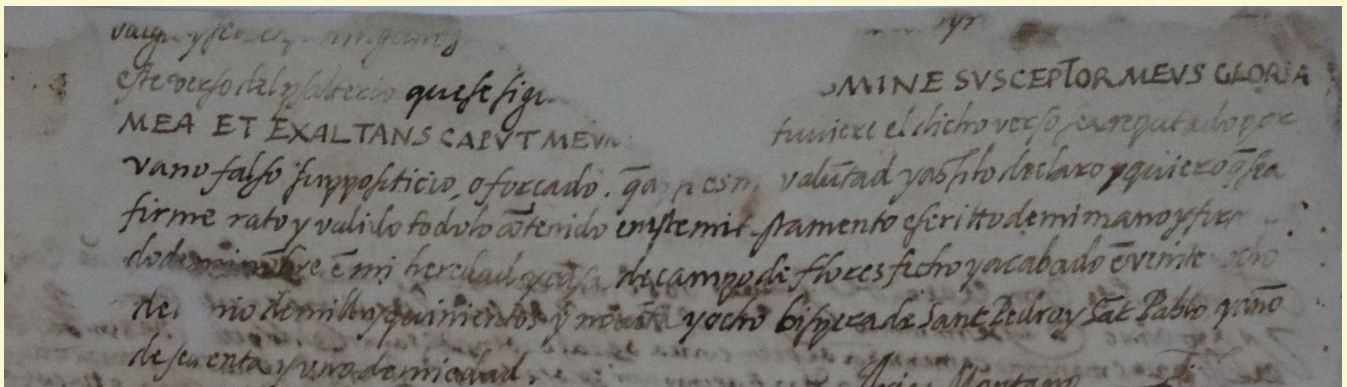 valga y sea ninguno
este verso del psalterio que se sigu OMINE SVSCEPTOR MEVS GLORIA
MEA ET EXALTANS CAPVT MEVM tuviere el dicho verso sea reputado por
vano falso supposititio, o forcado. q̄ asi es mi volūtad y assi lo declaro y quiero q̄ sea
firme rato y valido todo lo cōtenido en este mi testamento escritto de mi mano y fir
do de mi nōbre ē mi heredad y casa de campo de flores fecho y acabado ē veinte ocho
de nio de mill y quinientos y nouēta y ocho bispera de Sant Pedro y Sāt Pablo y año
de setenta y uno de mi edad.
Arias Montano